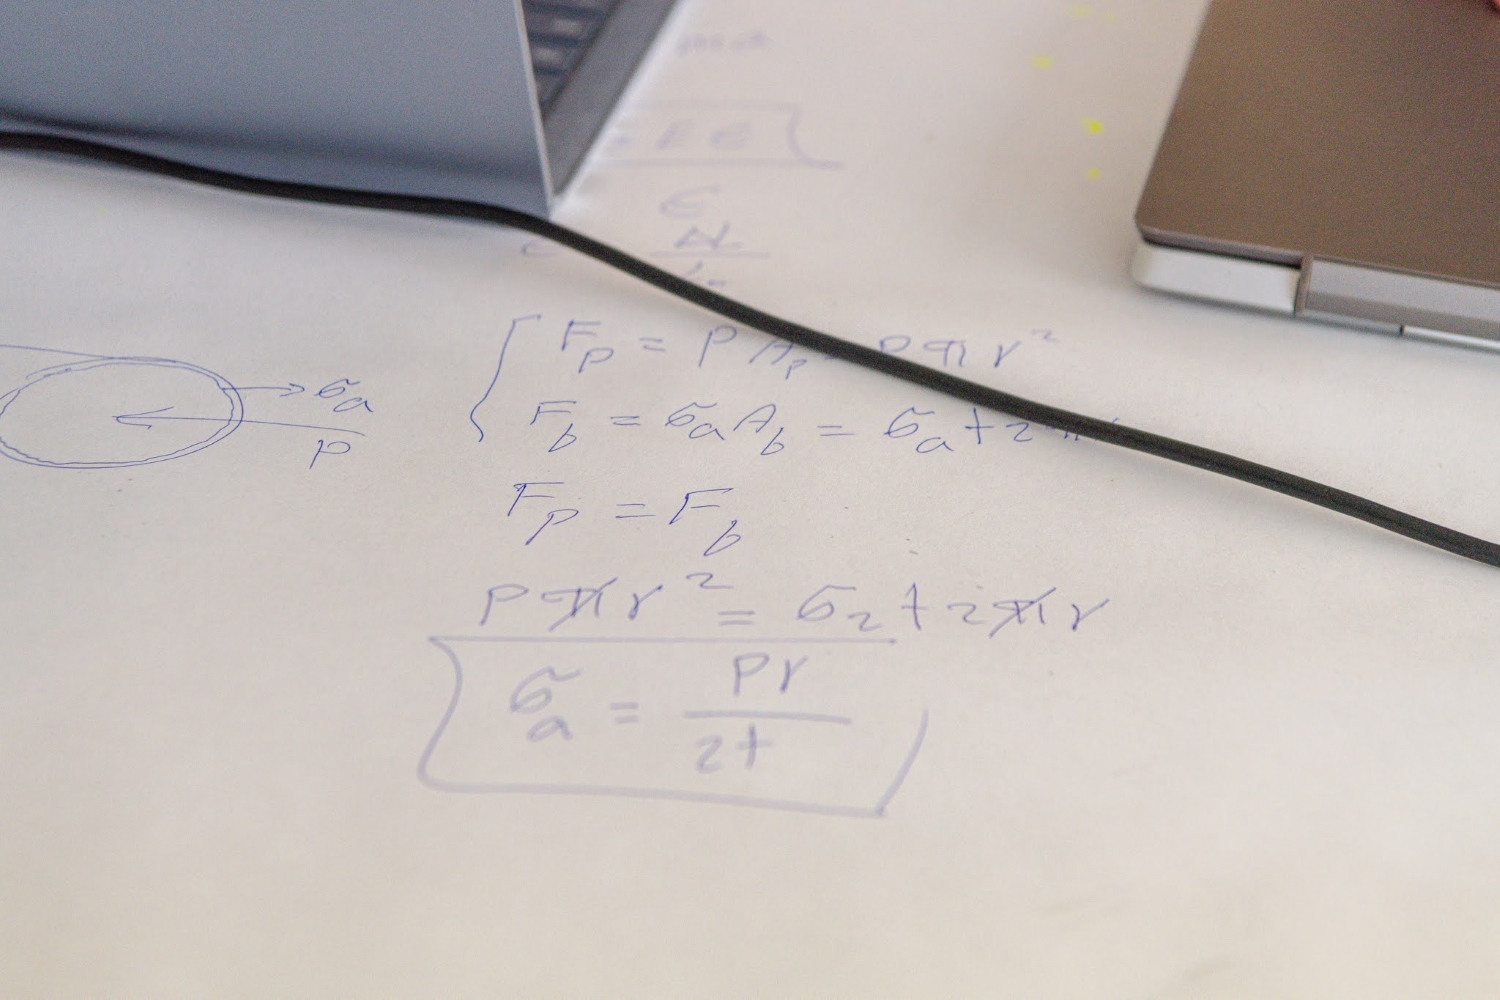 = E ε
ε
σₐ
p
F_p = P A_p = P π r²
F_b = σₐ A_b = σₐ t 2
F_p = F_b
P π r² = σ₂ t 2 π r
σₐ = Pr / 2t